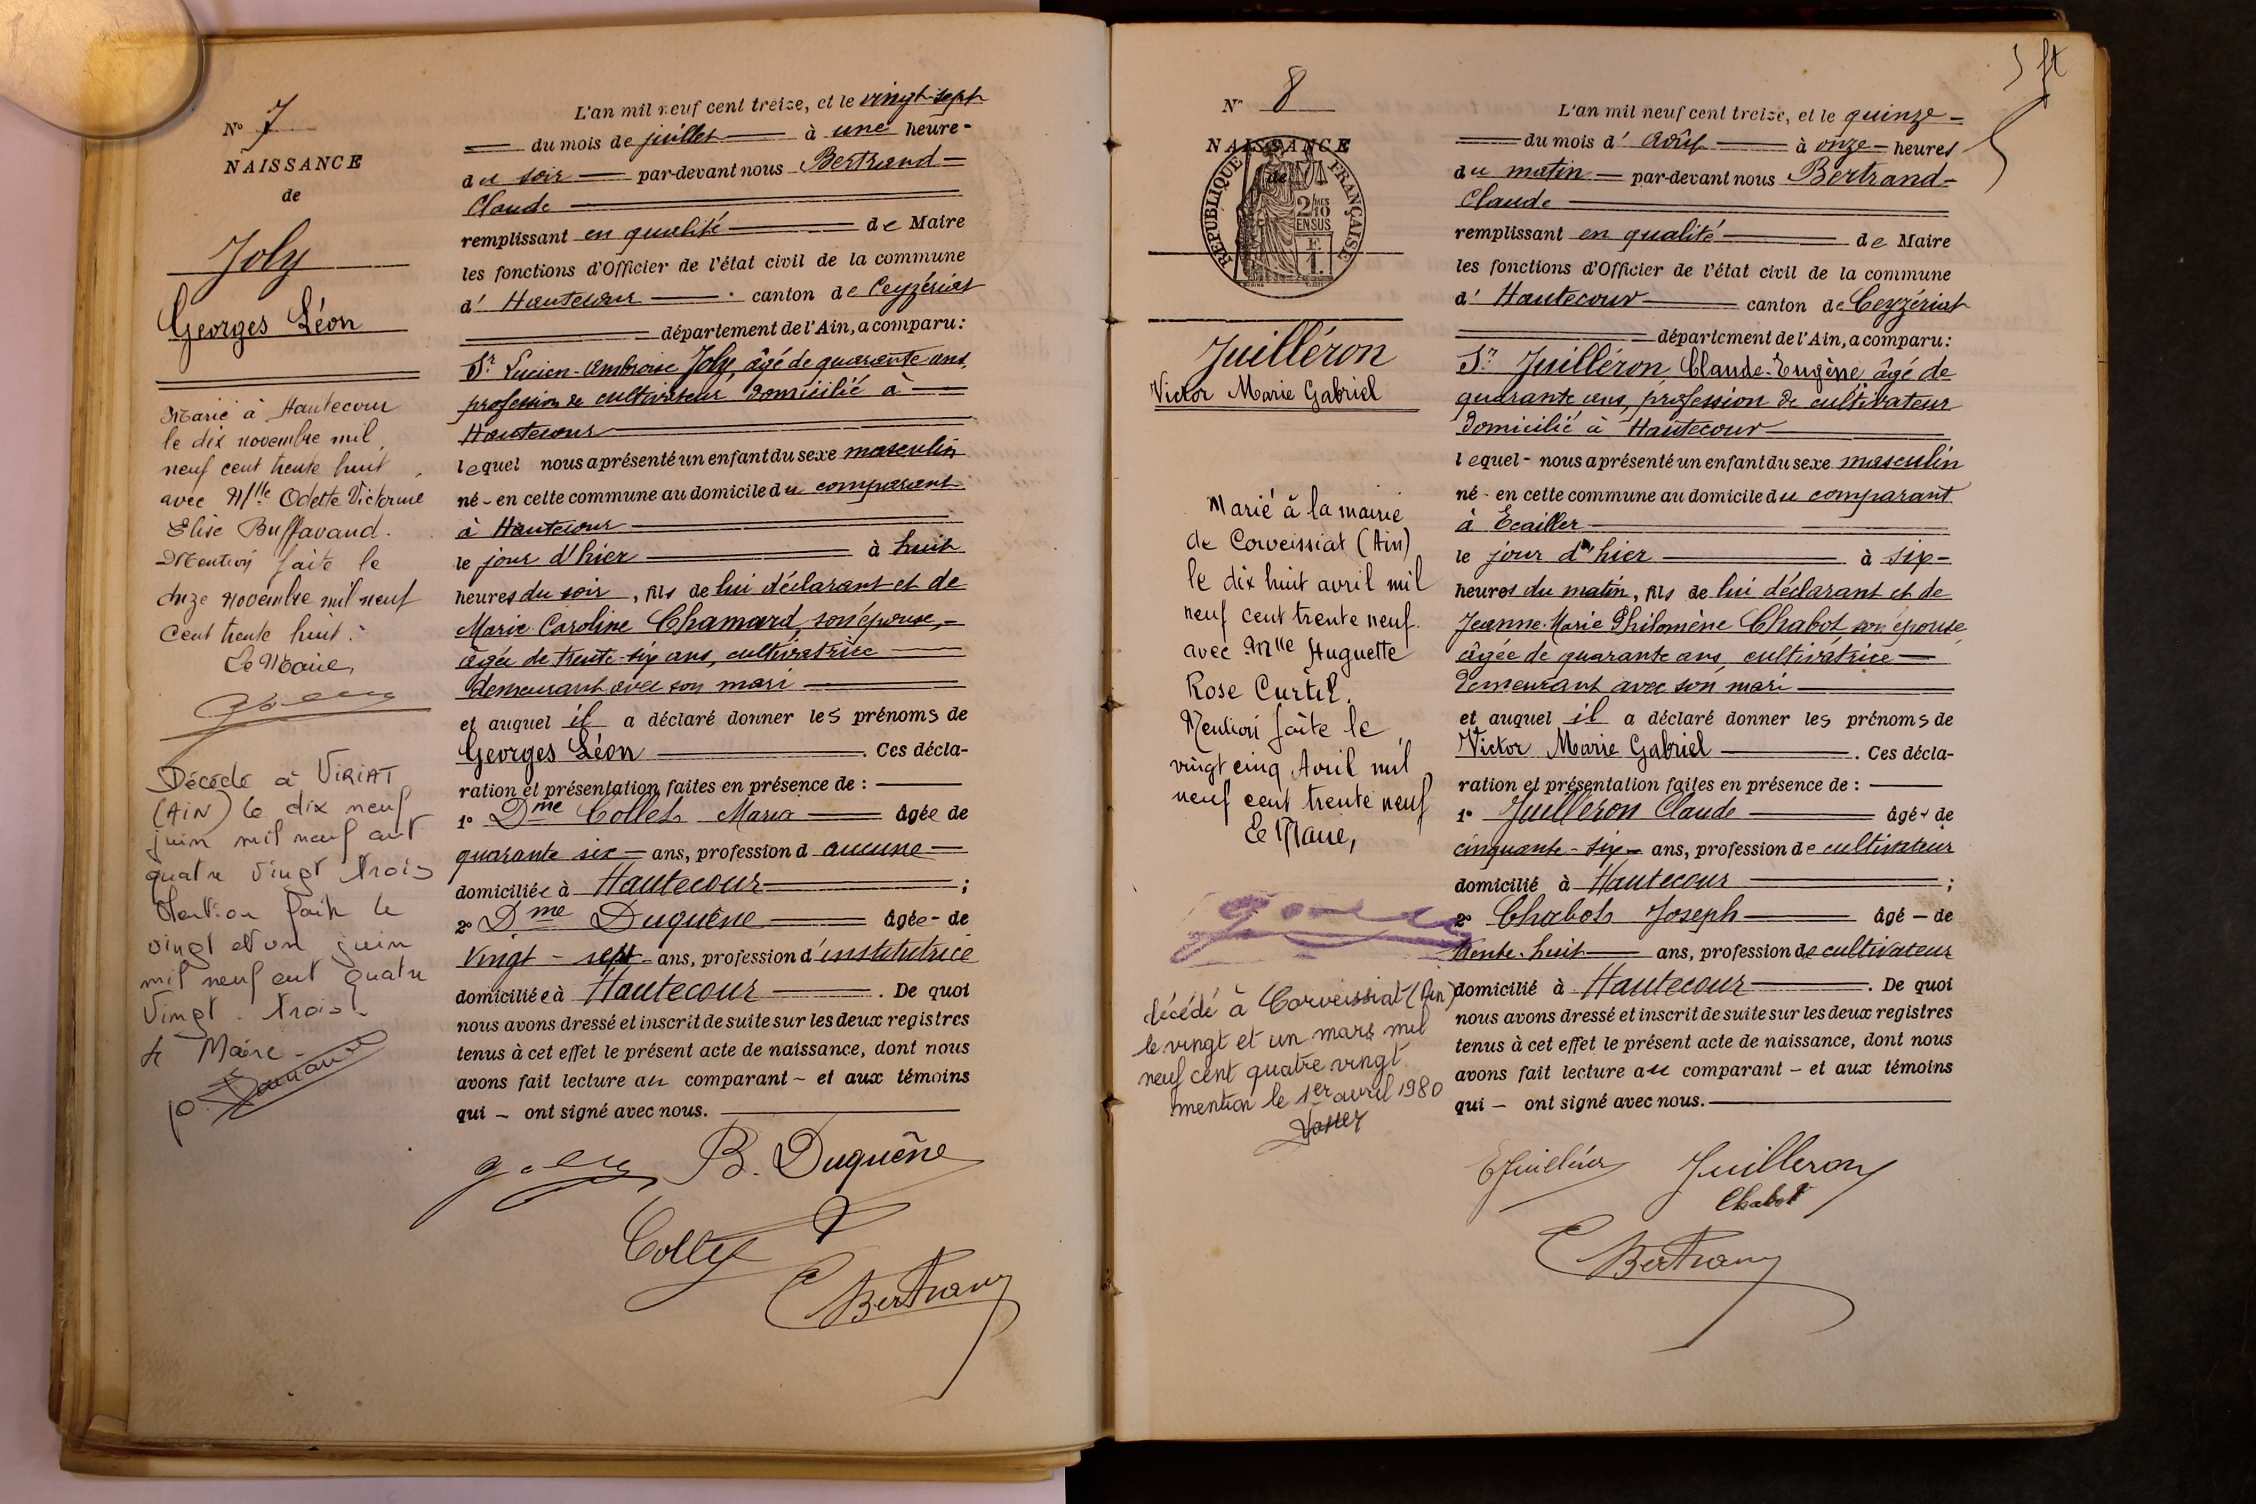 N° 7
NAISSANCE
de
Joly
Georges Léon
Marié à Hautecour
le dix novembre mil
neuf cent trente huit
avec Mlle Odette Victorine
Elise Buffavand.
Mention faite le
onze novembre mil neuf
cent trente huit.
Le Maire,
Décédé à VIRIAT
(AIN) le dix neuf
juin mil neuf cent
quatre vingt trois
Mention faite le
vingt et un juin
mil neuf cent quatre
vingt . trois.
Le Maire -
L'an mil neuf cent treize, et le vingt-sept
du mois de juillet à une heure -
du soir par-devant nous Bertrand
Claude
remplissant en qualité de Maire
les fonctions d'Officier de l'état civil de la commune
d' Hautecour canton de Ceyzériat
département de l'Ain, a comparu :
Sr Lucien-Ambroise Joly, âgé de quarante ans,
profession de cultivateur domicilié à
Hautecour
lequel nous a présenté un enfant du sexe masculin
né - en cette commune au domicile du comparant
à Hautecour
le jour d'hier à huit
heures du soir, fils de lui déclarant et de
Marie Caroline Chamard, son épouse, -
âgée de trente-six ans, cultivatrice
demeurant avec son mari
et auquel il a déclaré donner les prénoms de
Georges Léon . Ces décla-
ration et présentation faites en présence de :
1° Dme Collet Maria âgée de
quarante six ans, profession d aucune
domiciliée à Hautecour ;
2° Dme Duquêne âgée - de
vingt - sept ans, profession d'institutrice
domiciliée à Hautecour . De quoi
nous avons dressé et inscrit de suite sur les deux registres
tenus à cet effet le présent acte de naissance, dont nous
avons fait lecture au comparant - et aux témoins
qui - ont signé avec nous.
Joly B. Duquêne
Collet
C Bertrand
N° 8
NAISSANCE
de
RÉPUBLIQUE FRANÇAISE
2/10 MES
EN SUS
F.
1.
Juilléron
Victor Marie Gabriel
Marié à la mairie
de Corveissiat (Ain)
le dix huit avril mil
neuf cent trente neuf.
avec Mlle Huguette
Rose Curtil.
Mention faite le
vingt cinq Avril mil
neuf cent trente neuf
Le Maire,
décédé à Corveissiat (Ain)
le vingt et un mars mil
neuf cent quatre vingt
mention le 1er avril 1980
L'an mil neuf cent treize, et le quinze
du mois d' août à onze heures
du matin par-devant nous Bertrand
Claude
remplissant en qualité de Maire
les fonctions d'Officier de l'état civil de la commune
d' Hautecour canton de Ceyzériat
département de l'Ain, a comparu :
Sr Juilléron Claude-Eugène âgé de
quarante ans, profession de cultivateur
domicilié à Hautecour
lequel - nous a présenté un enfant du sexe masculin
né - en cette commune au domicile du comparant
à Ecailler
le jour d'hier à six
heures du matin, fils de lui déclarant et de
Jeanne-Marie Philomène Chabot son épouse,
âgée de quarante ans, cultivatrice
demeurant avec son mari
et auquel il a déclaré donner les prénoms de
Victor Marie Gabriel . Ces décla-
ration et présentation faites en présence de :
1° Juilleron Claude âgé de
cinquante - six ans, profession de cultivateur
domicilié à Hautecour ;
2° Chabot Joseph âgé - de
trente-huit ans, profession de cultivateur
domicilié à Hautecour . De quoi
nous avons dressé et inscrit de suite sur les deux registres
tenus à cet effet le présent acte de naissance, dont nous
avons fait lecture au comparant - et aux témoins
qui - ont signé avec nous.
E Juilléron Juilleron
Chabot
C Bertrand